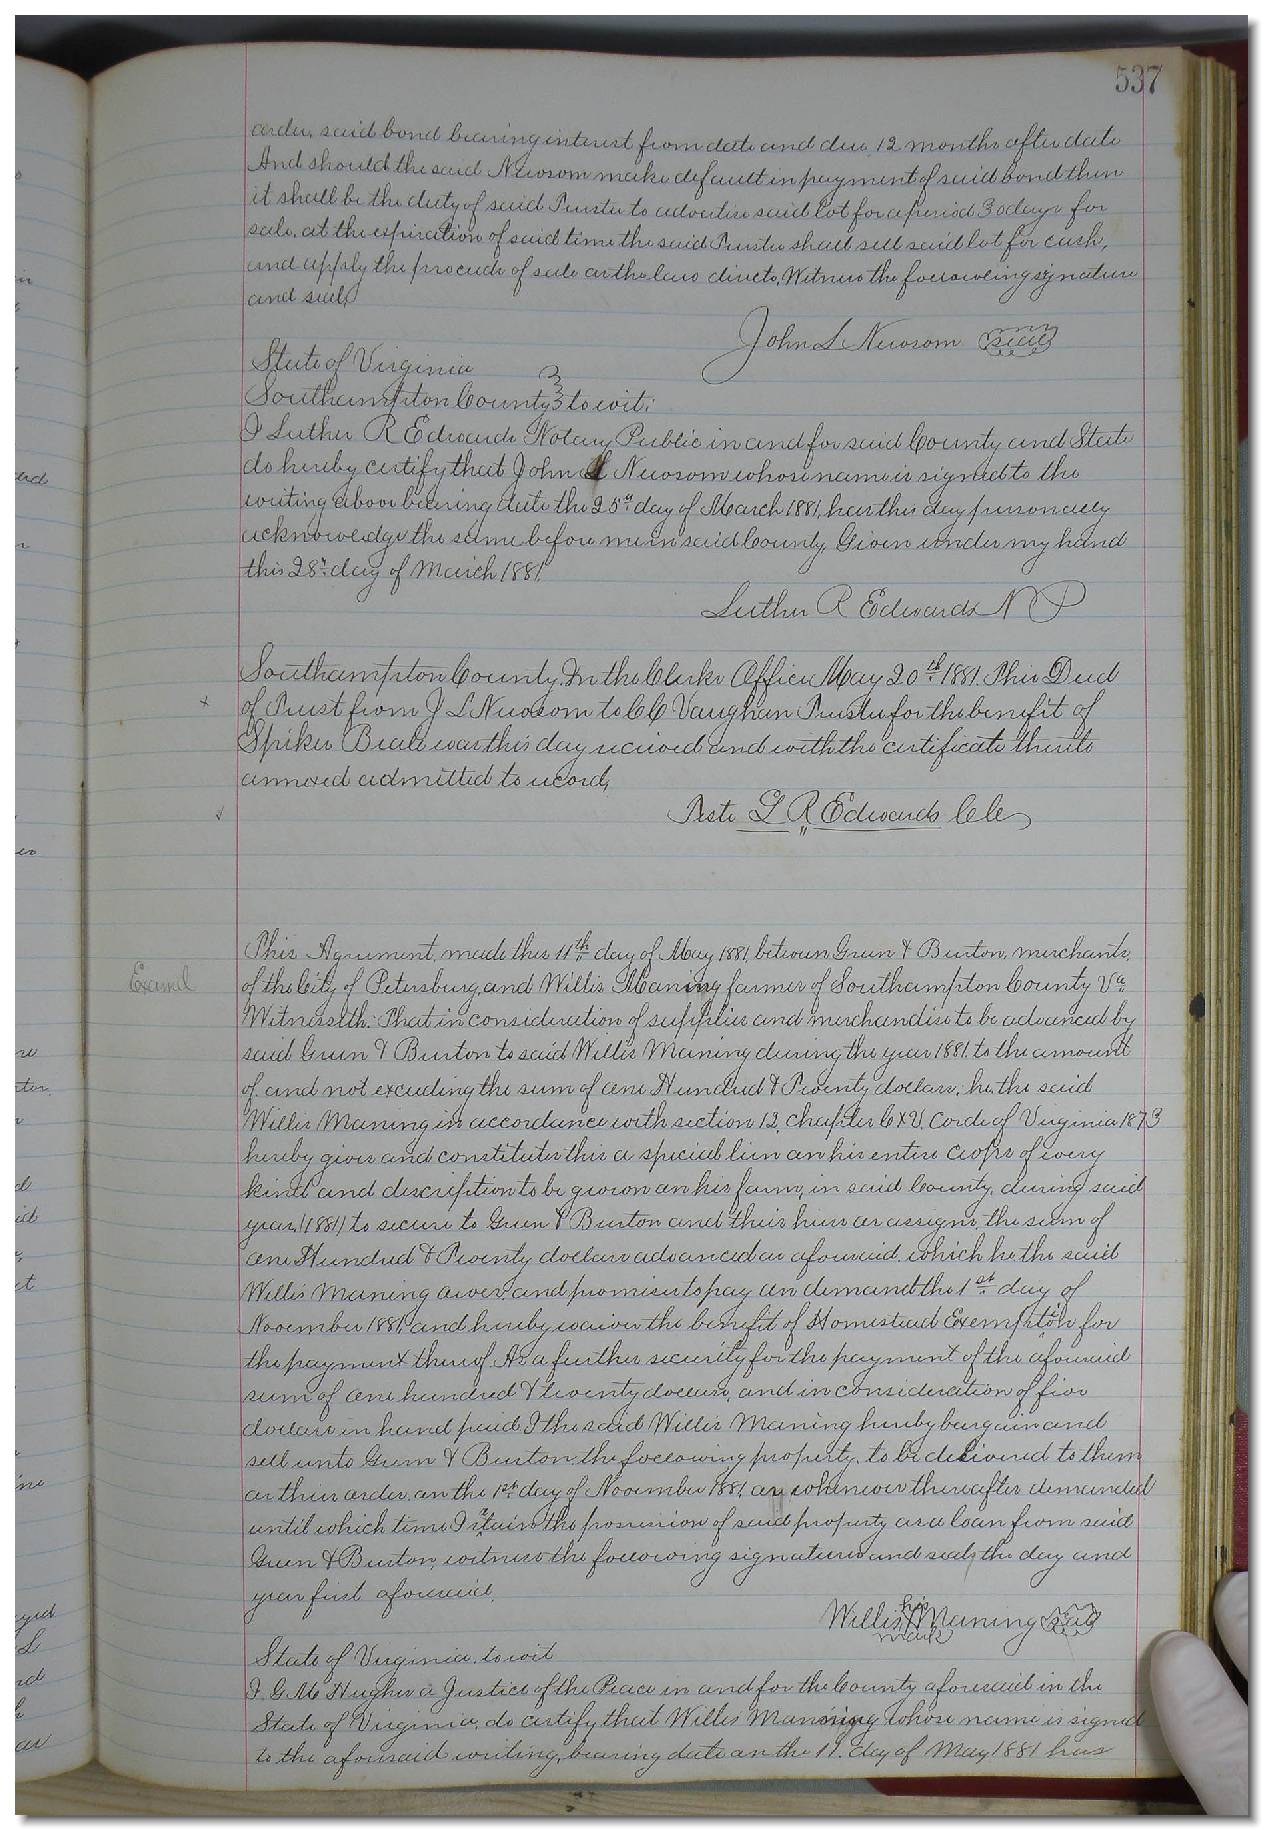 537
order, said bond bearing interest from date and due 12 months after date
And should the said Newsom make default in payment of said bond then
it shall be the duty of said Trustee to advertise said lot for a period 30 days for
sale, at the expiration of said time the said Trustee shall sell said lot for cash,
and apply the proceeds of sale as the law directs, Witness the following signature
and seal,
John L Newsom seal
State of Virginia
Southampton County to wit:
I Luther R Edwards Notary Public in and for said County and State
do hereby certify that John L Newsom whose name is signed to the
writing above bearing date the 25th day of March 1881, has this day personally
acknowledge the same before me in said County Given under my hand
this 28th day of March 1881
Luther R Edwards N P
Southampton County. In the Clerks Office May 20th 1881. This Deed
x of Trust from J L Newsom to C C Vaughan Trustee for the benefit of
Beale was this day received and with the certificate thereto
annexed admitted to record,
Teste L R Edwards Clk
This Agreement, made this 11th day of May 1881, between Green & Burton, merchants,
Examd of the City of Petersburg, and Willis Maning farmer of Southampton County Va
Witnesseth: That in consideration of supplies and merchandise to be advanced by
said Green & Burton to said Willis Maning during the year 1881, to the amount
of, and not exceeding the sum of one Hundred & Twenty dollars, he, the said
Willis Maning in accordance with section 12, chapter CXV, Corde of Virginia 1873
hereby gives and constitutes this a special lien on his entire crops of every
kind and description to be grown on his farm, in said County, during said
year, (1881) to secure to Green & Burton and their heirs or assigns, the sum of
one Hundred & Twenty dollars advanced as aforesaid, which he, the said
Willis Maning owes, and promises to pay on demand the 1st day of
November 1881, and hereby waives the benefit of Homestead Exemption for
the payment thereof. As a further security for the payment of the aforesaid
sum of one hundred & twenty dollars, and in consideration of five
dollars in hand paid, I the said Willis Maning hereby bargain and
sell unto Green & Burton, the following property, to be delivered to them
or their order, on the 1st day of November 1881 or whenever thereafter demanded
until which time I retain the possession of said property as a loan from said
Green & Burton, witness the following signatures and seals, the day and
year first aforesaid,
his
Willis Maning seal
mark
State of Virginia, to wit
I G. M. Hughes a Justice of the Peace in and for the County aforesaid in the
State of Virginia, do certify that Willis Manning whose name is signed
to the aforesaid writing, bearing date on the 11. day of May 1881 has